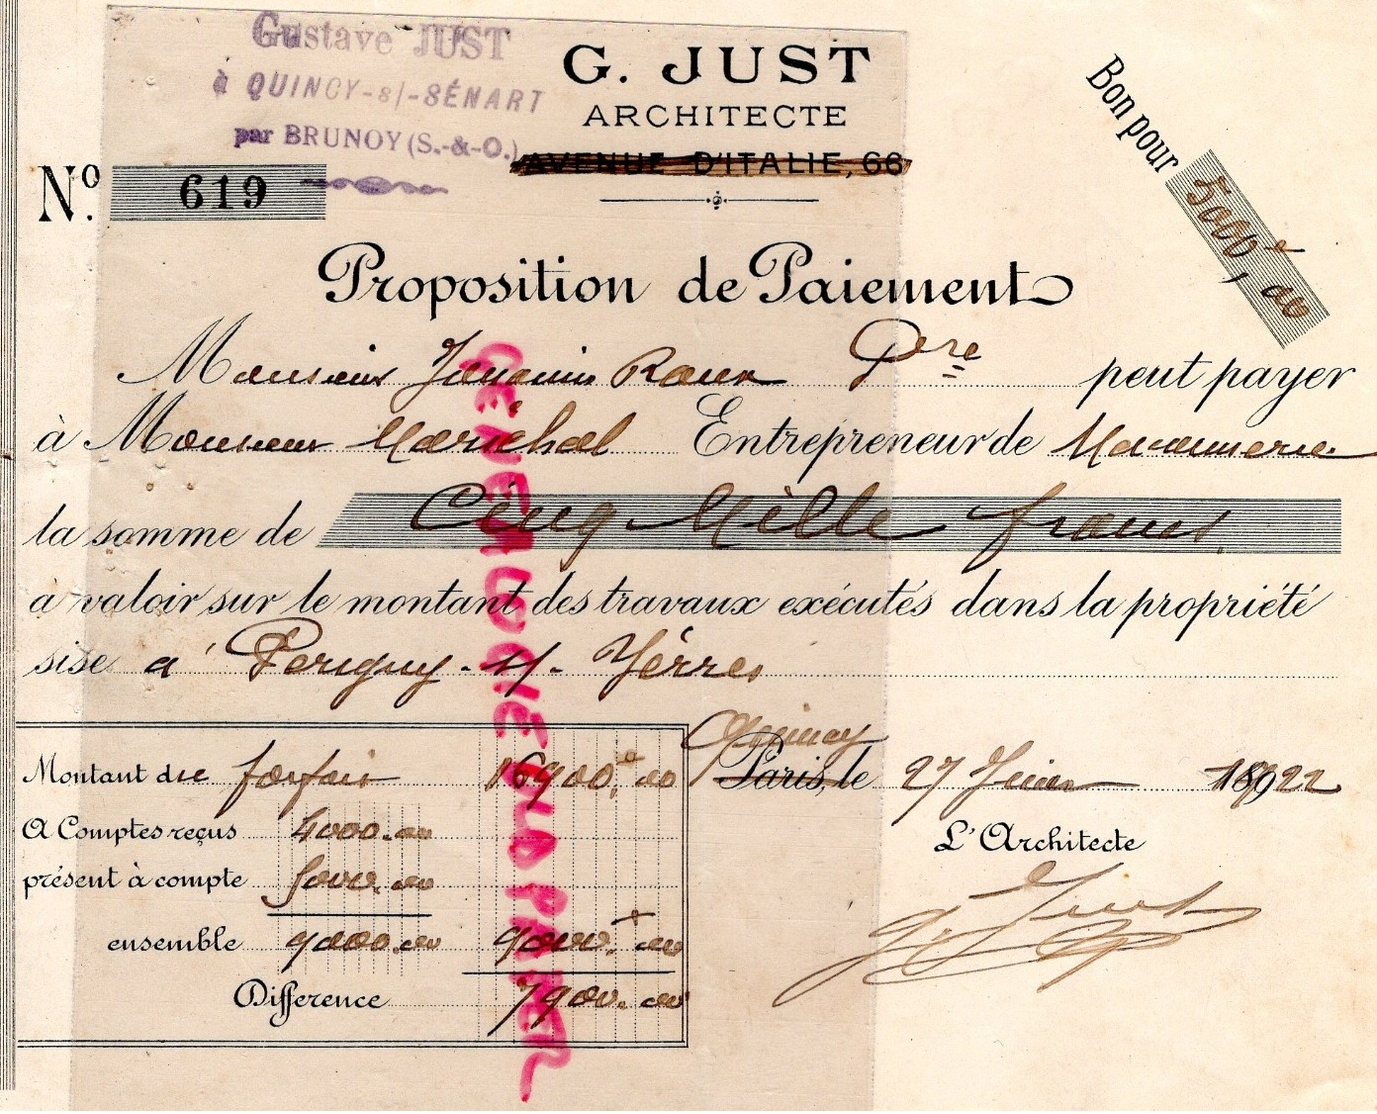 Gustave JUST
à QUINCY-s/-SÉNART
par BRUNOY (S.-&-O.)
G. JUST
ARCHITECTE
AVENUE D'ITALIE, 66
Nº 619
Bon pour 5000f, 00
Proposition de Paiement
Monsieur Roux Père peut payer
à Monsieur Maréchal Entrepreneur de Maçonnerie
la somme de Cinq Mille francs
a valoir sur le montant des travaux exécutés dans la propriété
sise a' Perigny-s/-Yerres
Quincy
Paris, le 27 Juin 1922
Montant du forfait 16900f, 00
A Comptes reçus 4000.00
présent à compte 5000.00
ensemble 9000.00 9000f.00
Différence 7900.00
L'Architecte
G. Just
GENEALOGIE AND PAPER